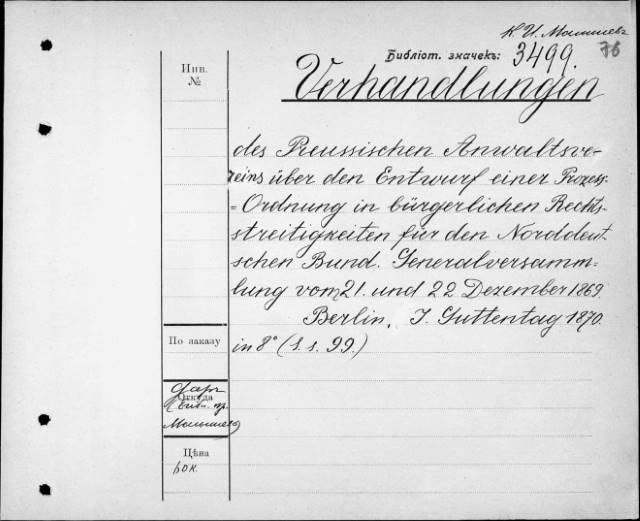 К. И. Малышевъ
76
Библіот. значекъ: 3499.
Инв.
№
Verhandlungen
des Preussischen Anwaltsve-
reins über den Entwurf einer Prozess-
=Ordnung in bürgerlichen Rechts-
streitigkeiten für den Norddeut-
schen Bund. Generalversamm=
lung vom 21. und 22 Dezember 1869.
Berlin, J. Guttentag 1870.
По заказу
in 8° (S.s. 99.)
Даръ
Откуда
Малышева
Цѣна
60 к.